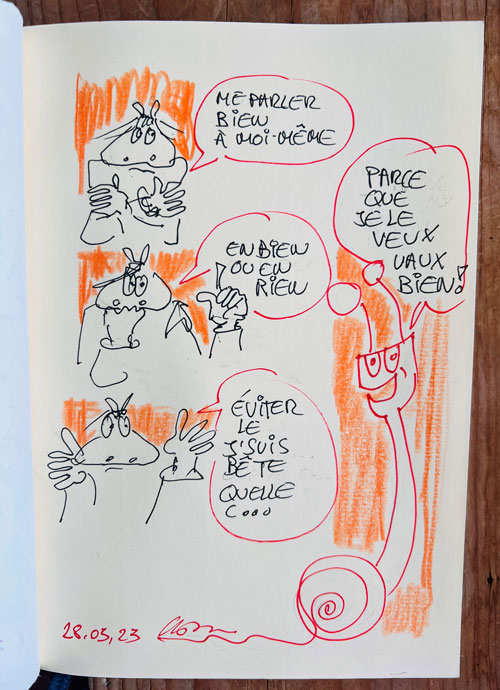 ME PARLER
BIEN
À MOI-MÊME
EN BIEN
OU EN
RIEN
ÉVITER
LE
J'SUIS
BÊTE
QUELLE
C...
PARCE
QUE
JE LE
VEUX
VAUX
BIEN!
28.05,23